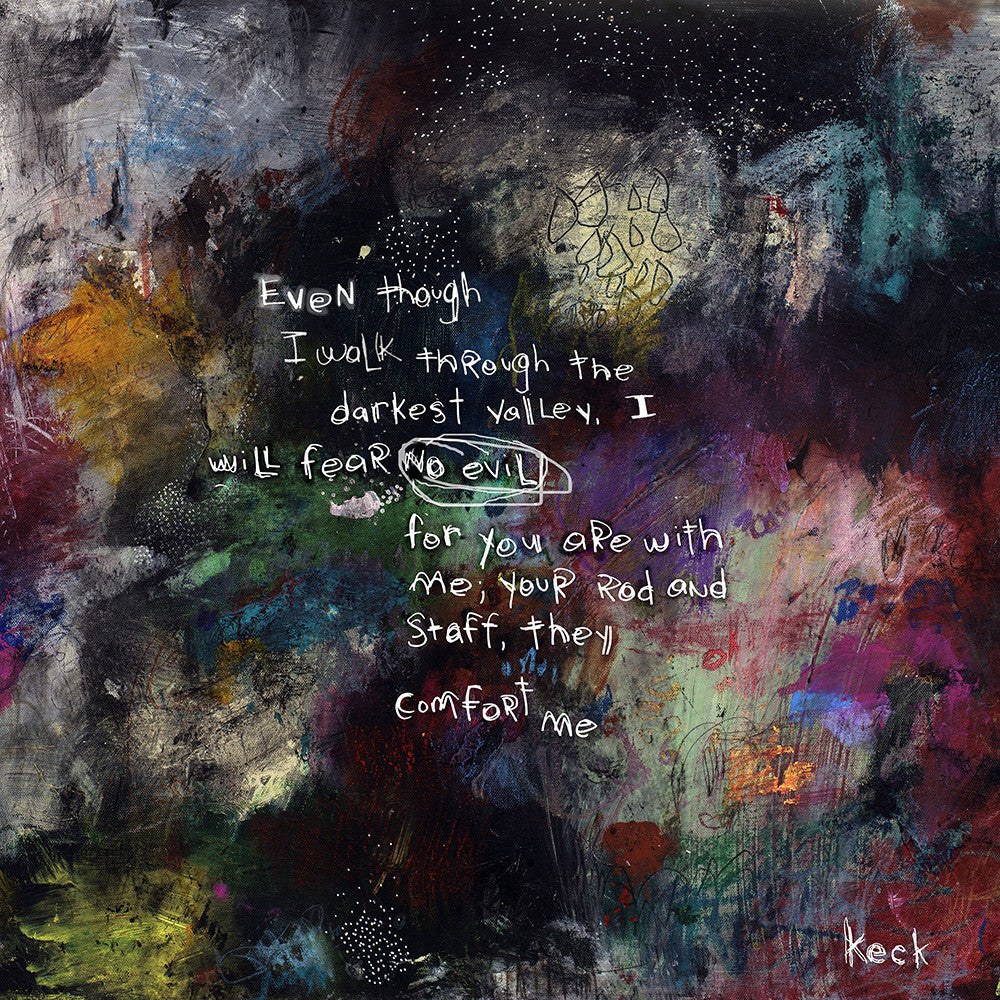 EveN though
I walk thRough the
darkest valley, I
will feaR No evil
for you aRe with
Me; youR Rod and
Staff, they
comfoRt me
keck